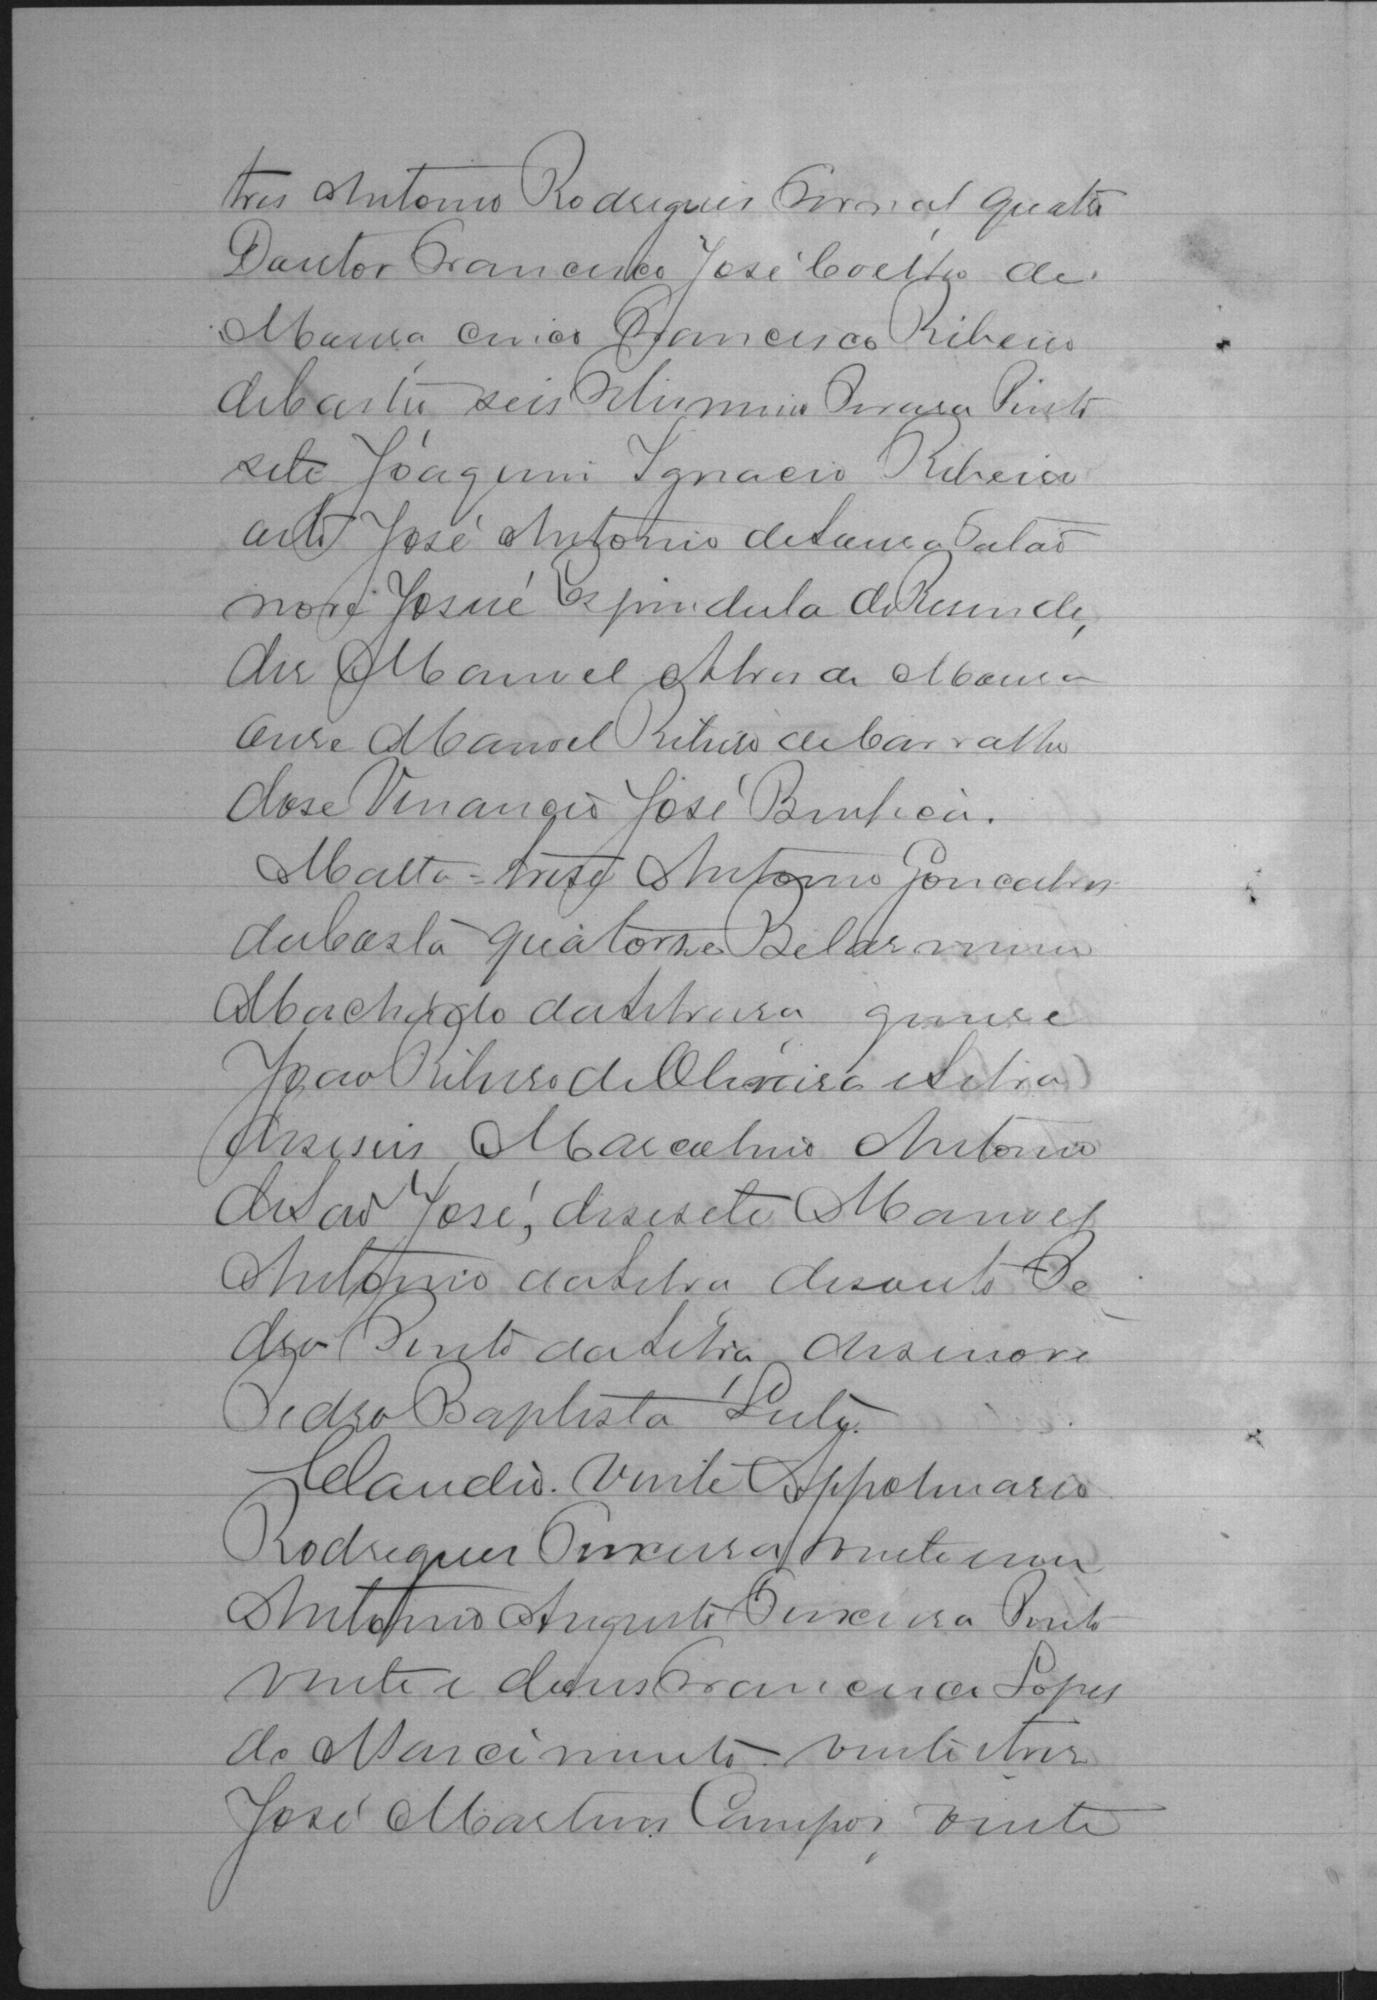 tres Antonio Rodrigues quatro
Doutor Francisco José Coelho de
Moura cinco Francisco Ribeiro
de Castro seis Pinto
sete Joaquim Ignacio Ribeiro
oito José Antonio de Souza Galvão
nove Josué Espindula de Resende,
dez Manoel Alves de Moura
onse Manoel Ribeiro de Carvalho
dose Venancio José Bemfica.
Matta = trese Antonio Goncalves
da Costa quatorse Belarmino
Machado da Silveira quinse
João Ribeiro de Oliveira e Silva
deseseis Marcolino Antonio
de São José, desesete Manoel
Antonio da Silva desoito Pe
dro Pinto da Silva desenove
Pedro Baptista Leite.
Claudio. Vinte Appolinario
Rodrigues Teixeira vinte e um
Antonio Augusto Teixeira Pinto
vinte e dous Francisco Lopes
do Nascimento - vinte e tres
José Martins Campos, vinte